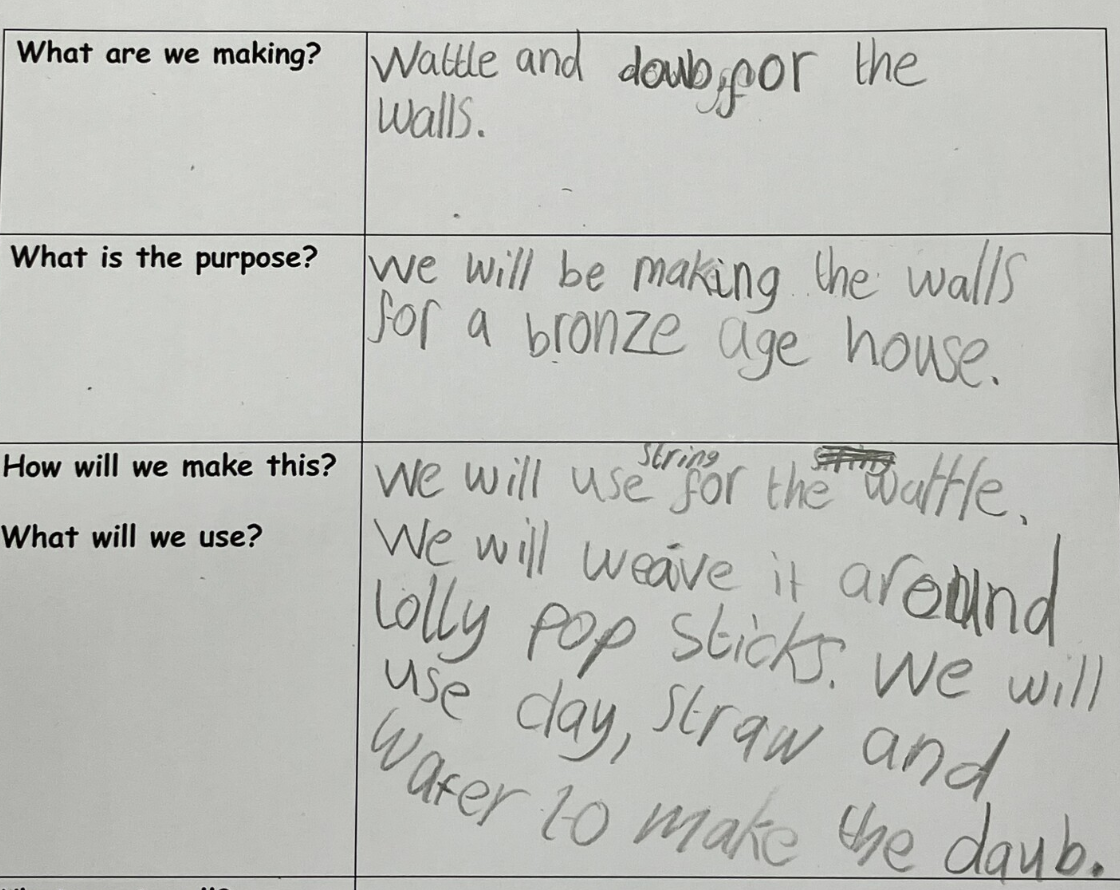 What are we making?
Wattle and daub, for the
walls.
What is the purpose?
we will be making the walls
for a bronze age house.
How will we make this?
What will we use?
we will use string for the wattle.
We will weave it around
Lolly pop sticks. we will
use clay, straw and
Water to make the daub.